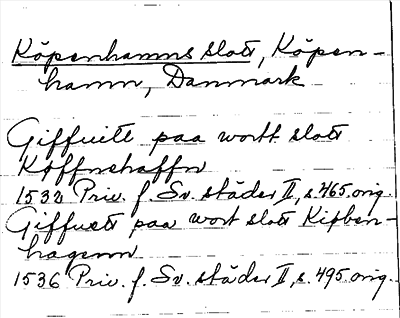 Köpenhamns slott, Köpen-
hamn, Danmark
Giffuett paa wortt slott
Køffnehaffn
1532 Priv. f. Sv. städer II, s. 465. orig.
Giffuett paa wort slott Kiøben-
hagenn
1536 Priv. f. Sv. städer II, s. 495. orig.